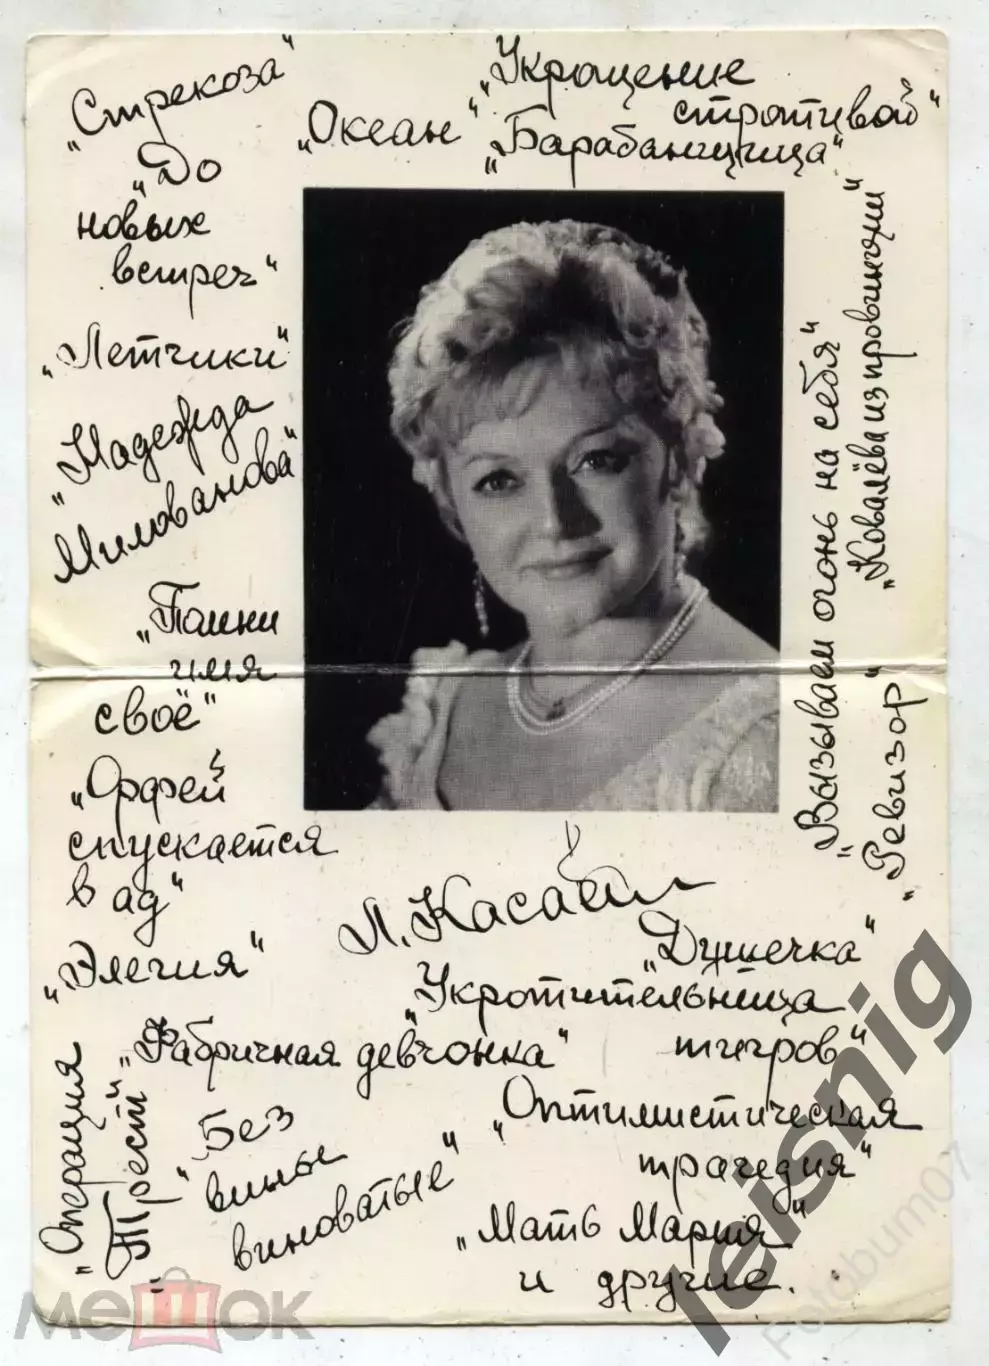 „Стрекоза"
„Океан"
„Укрощение
строптивой"
„Барабанщица"
„До
новых
встреч"
„Летчики"
„Надежда
Милованова"
„Помни
имя
своё"
„Орфей
спускается
в ад"
„Элегия"
„Вызываем огонь на себя"
„Ковалёва из провинции"
„Ревизор"
Л. Касат
„Душечка"
„Укротительница
тигров"
„Фабричная девчонка"
„Операция
„Трест"
„Без
вины
виноватые"
„Оптимистическая
трагедия"
„Мать Мария"
и другие.
мешок
leisnig
Fotobum07